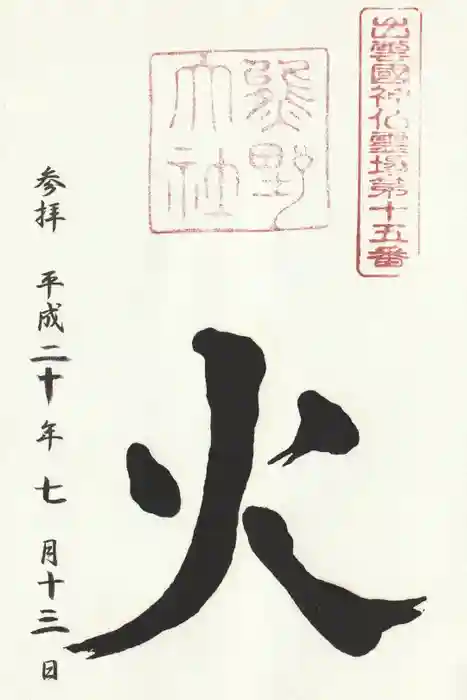 出雲國神仏霊場第十五番
熊野
大社
火
参拝 平成二十年七月十三日